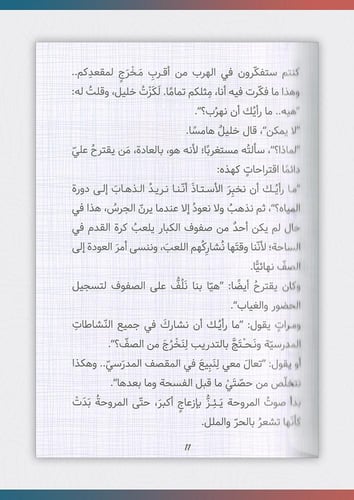 كنتم ستفكّرون في الهرب من أقربِ مَخْرَجٍ لمقعدِكم..
وهذا ما فكّرت فيه أنا، مِثلكم تمامًا. لَكَزْتُ خليل، وقلتُ له:
"هيه.. ما رأيُك أن نهرُب؟".
"لا يمكن"، قال خليلُ هامسًا.
"لماذا؟"، سألتُه مستغربًا؛ لأنه هو، بالعادة، مَن يقترحُ عليّ
دائمًا اقتراحاتٍ كهذه:
"ما رأيُك أن نخبِرَ الأستـاذَ أنّنـا نريدُ الذهابَ إلى دورة
المياه؟"، ثم نذهبُ ولا نعودُ إلا عندما يرنّ الجرسُ، هذا في
حال لم يكن أحدٌ من صفوف الكبار يلعبُ كرة القدم في
الساحة؛ لأنّنا وقتَها نُشارِكُهم اللعبَ، وننسى أمرَ العودة إلى
الصفّ نهائيًّا.
وكان يقترحُ أيضًا: "هيّا بنا نَلُفُّ على الصفوف لتسجيل
الحضور والغياب".
ومـراتٍ يقول: "ما رأيُـك أن نشاركَ في جميع النّشاطاتِ
المدرسيّة ونَحـتَجَّ بالتدريب لِنَخْرُجَ من الصفّ؟".
أو يقول: "تعالَ معي لِنَبِيعَ في المقصف المدرَسيّ.. وهكذا
نتخلّص من حصّتَيْ ما قبل الفسحة وما بعدها".
بدأ صوتُ المروحة يَـئِـزُّ بإزعاجٍ أكبرَ، حتّى المروحةُ بَدَتْ
كأنّها تشعرُ بالحرّ والملل.
١١